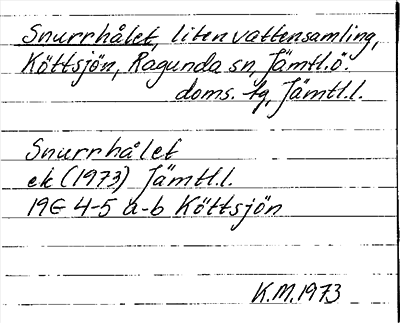 Snurrhålet, liten vattensamling,
Köttsjön, Ragunda sn, Jämtl.ö.
doms. tg, Jämtl.l.
Snurrhålet
ek (1973) Jämtl.l.
19E 4-5 a-b Köttsjön
K.M.1973